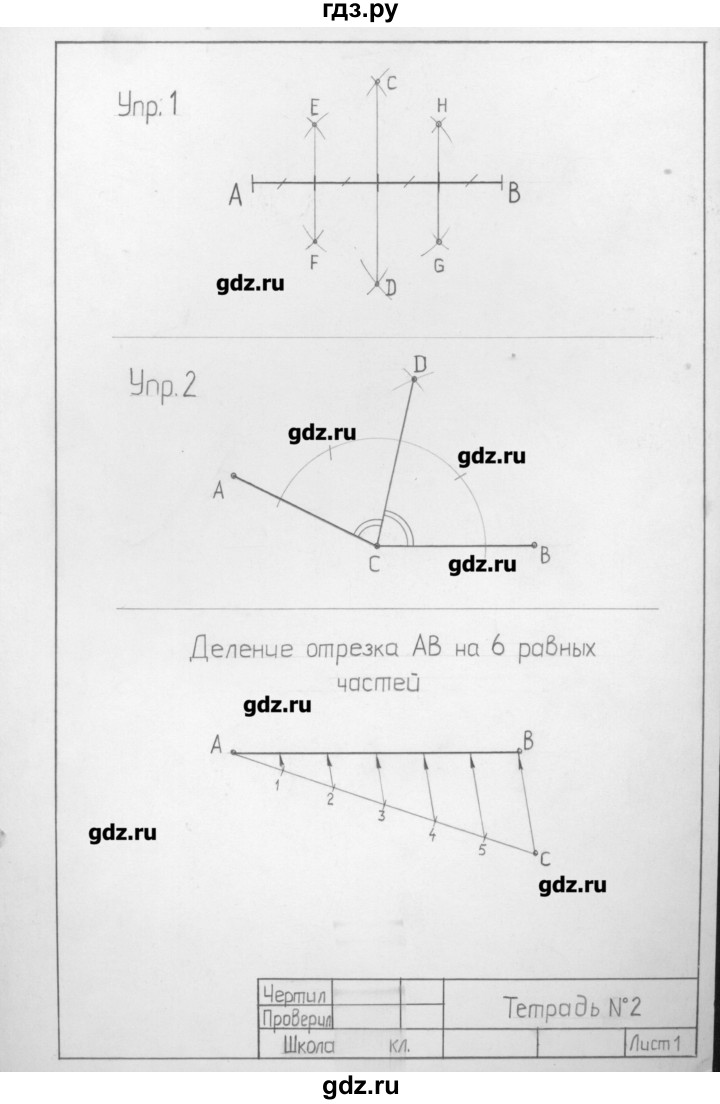 гдз.ру
Упр. 1
C
E
H
A
B
F
G
D
gdz.ru
Упр. 2
D
gdz.ru
gdz.ru
A
C
gdz.ru
B
Деление отрезка АВ на 6 равных
частей
gdz.ru
A
B
1
2
3
4
5
C
gdz.ru
gdz.ru
Чертил
Проверил
Школа кл.
Тетрадь №2
Лист 1
gdz.ru